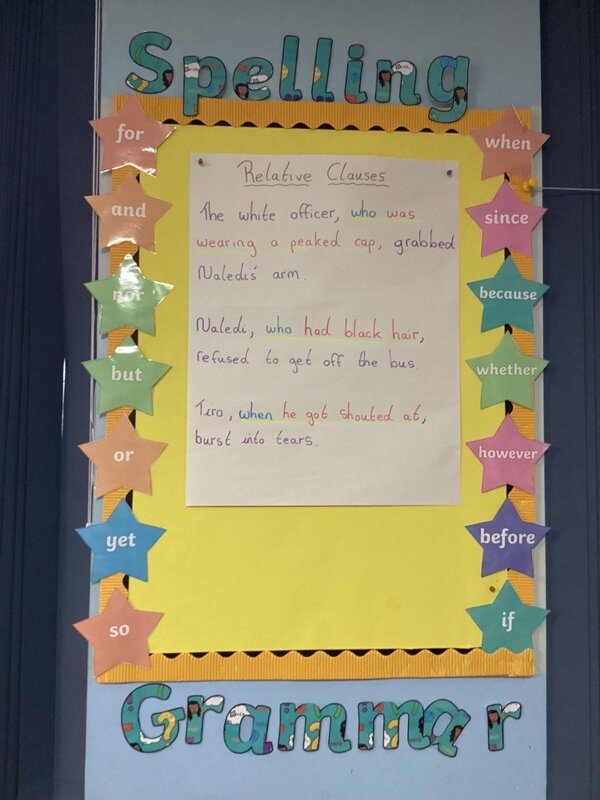 Spelling
for
and
nor
but
or
yet
so
Relative Clauses
The white officer, who was
wearing a peaked cap, grabbed
Naledi's arm.
Naledi, who had black hair,
refused to get off the bus.
Tiro, when he got shouted at,
burst into tears.
when
since
because
whether
however
before
if
Grammar